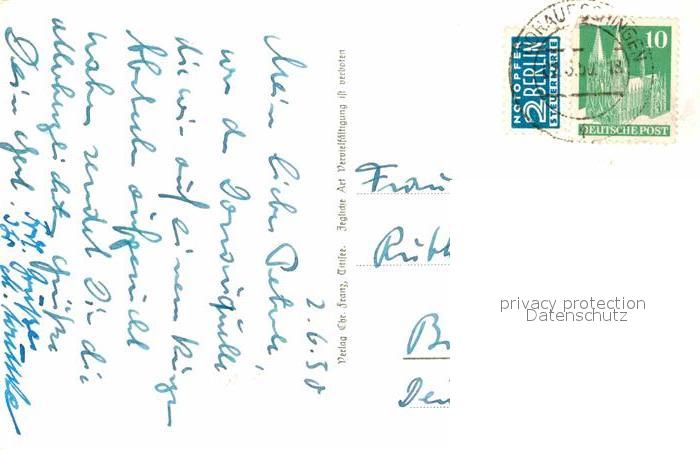 2.6.50
Mein liebes Peterle,
von der Donauquelle
die wir auf einem kurzen
Abstecher aufgesucht
haben sendet Dir die
allerherzlichsten Grüße
Dein Gerd.
Frdl. Grüße
Ihr
Verlag Chr. Franz, Titisee. Jegliche Art Vervielfältigung ist verboten
Frau
Ruth
B
De
NOTOPFER
2 BERLIN
STEUERMARKE
DONAUESCHINGEN
10
DEUTSCHE POST
privacy protection
Datenschutz